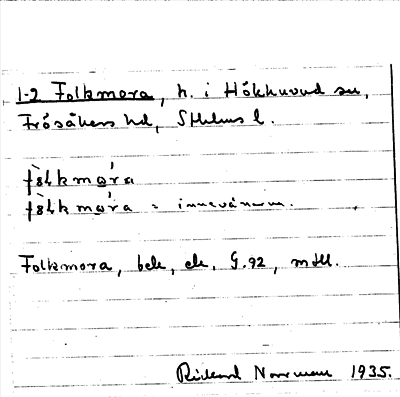 1-2 Folkmora, h. i Hökhuvud sn,
Frösåkers hd, Sthlms l.
fòlkmω´ra
fòlkmω´ra = innevånarn.
Folkmora, bek, ek, G.92, mtl.
Rickard Norrman 1935.